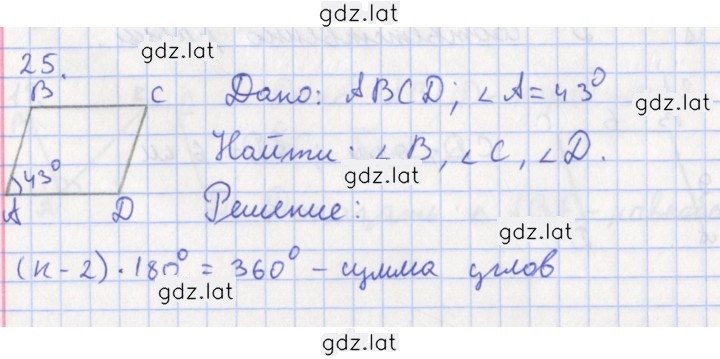 gdz.lat
gdz.lat
25.
B C Дано: ABCD; ∠A=43°
gdz.lat
43° Найти: ∠B, ∠C, ∠D.
gdz.lat
A D Решение:
gdz.lat
(n-2)·180°=360° - сумма углов
gdz.lat
gdz.lat